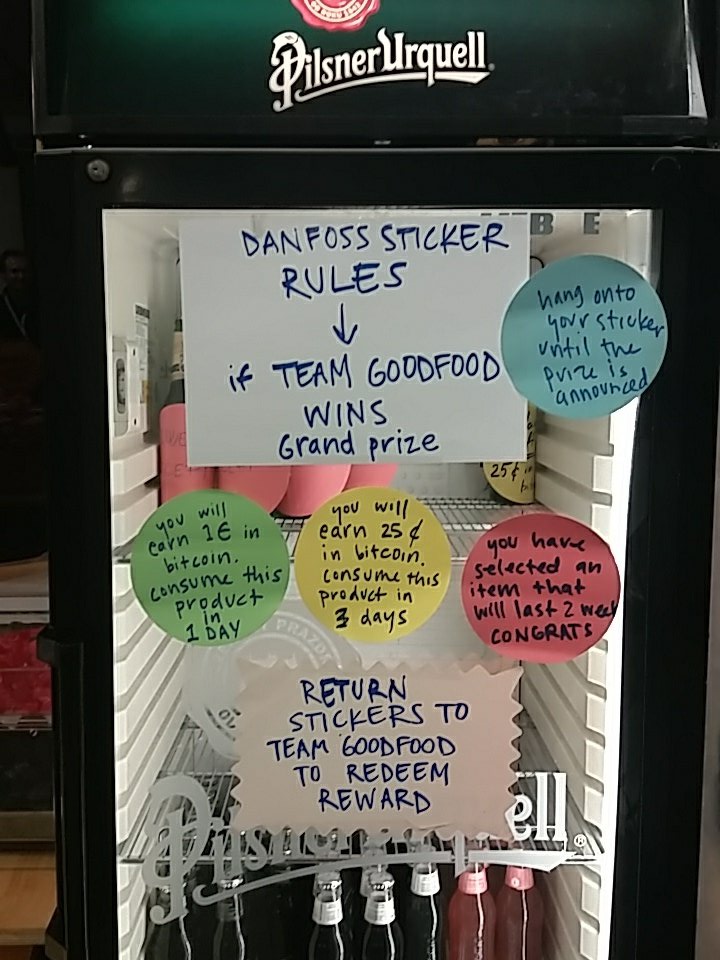 Pilsner Urquell
DANFOSS STICKER
RULES
↓
if TEAM GOODFOOD
WINS
Grand prize
hang onto
your sticker
until the
prize is
announced
25¢ in
you will
earn 1€ in
bitcoin.
consume this
product
in
1 DAY
you will
earn 25 ¢
in bitcoin.
consume this
product in
3 days
you have
selected an
item that
will last 2 week
CONGRATS
PRAZDRO
RETURN
STICKERS TO
TEAM GOODFOOD
TO REDEEM
REWARD
Pilsner Urquell